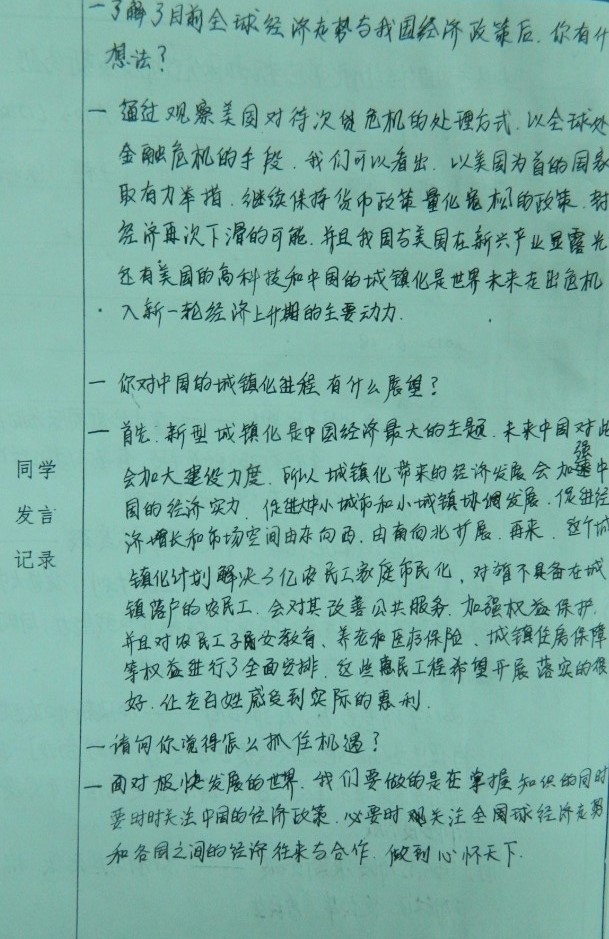 一 了解了目前全球经济走势与我国经济政策后,你有什
想法?
一 通过观察美国对待次贷危机的处理方式,以全球处
金融危机的手段,我们可以看出,以美国为首的国家
取有力举措,继续保持货币政策量化宽松的政策,
经济再次下滑的可能,并且我国与美国在新兴产业显露光
还有美国的高科技和中国的城镇化是世界未来走出危机
入新一轮经济上升期的主要动力.
一 你对中国的城镇化进程有什么展望?
一 首先,新型城镇化是中国经济最大的主题,未来中国对此
会加大建设力度,所以城镇化带来的经济发展会加强中
国的经济实力,促进大中小城市和小城镇协调发展,促进经
济增长和市场空间由东向西,由南向北扩展,再来,这个城
镇化计划解决3亿农民工家庭市民化,对暂不具备在城
镇落户的农民工,会对其改善公共服务,加强权益保护,
并且对农民工子女教育、养老和医疗保险,城镇住房保障
等权益进行了全面安排,这些惠民工程希望开展落实的很
好,让老百姓感受到实际的惠利.
一 请问你觉得怎么抓住机遇?
一 面对极快发展的世界,我们要做的是在掌握知识的同时
要时时关注中国的经济政策,必要时关注全国球经济走势
和各国之间的经济往来与合作,做到心怀天下.
同学
发言
记录